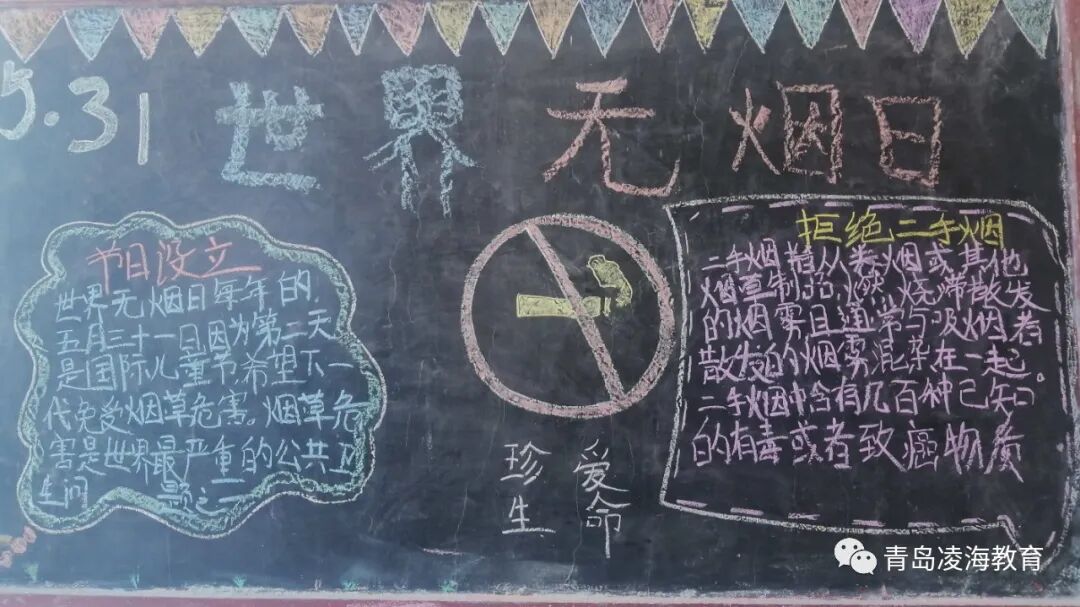 5.31 世界无烟日
节日设立
世界无烟日每年的
五月三十一日因为第二天
是国际儿童节,希望下一
代免受烟草危害。烟草危
害是世界最严重的公共卫
生问 题之一
珍爱
生命
拒绝二手烟
二手烟指从卷烟或其他
烟草制品燃烧端散发
的烟雾且通常与吸烟者
散发的烟雾混杂在一起。
二手烟中含有几百种已知
的有毒或者致癌物质
青岛凌海教育